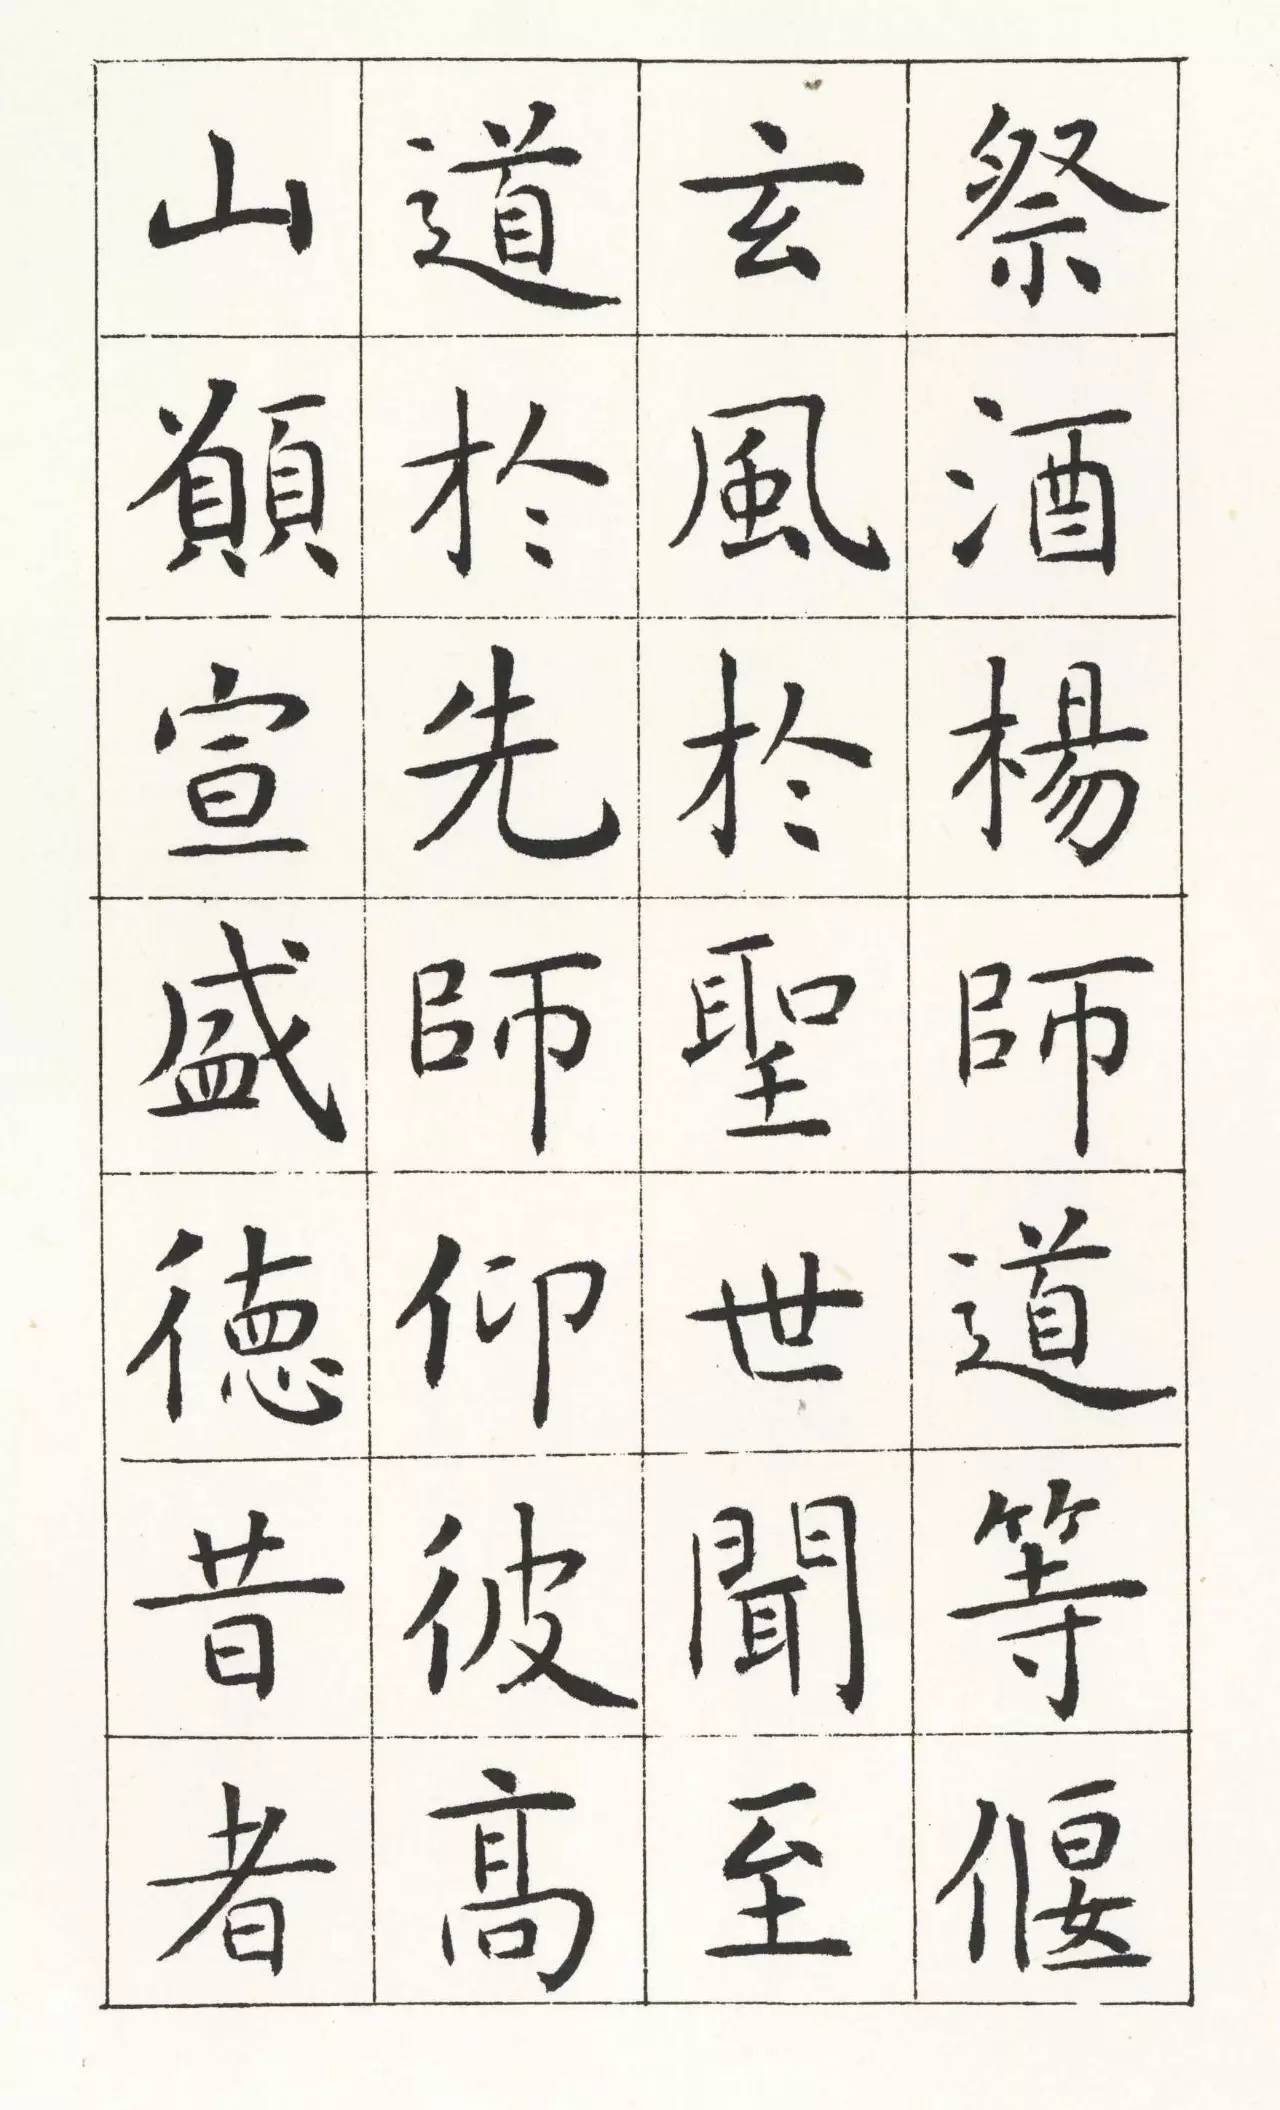 祭酒楊師道等偃
玄風於聖世聞至
道於先師仰彼高
山願宣盛德昔者